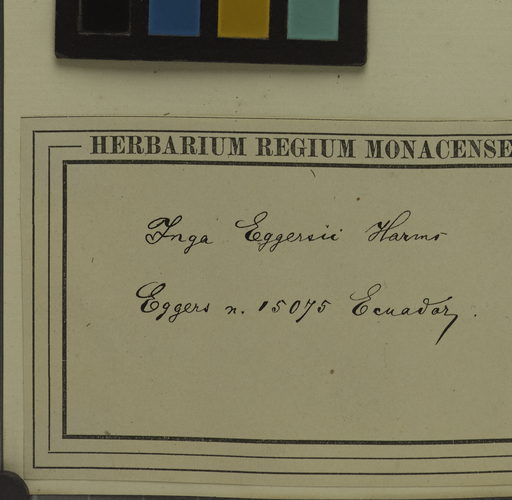 HERBARIUM REGIUM MONACENSE
Inga Eggersii Harms
Eggers n. 15075 Ecuador.